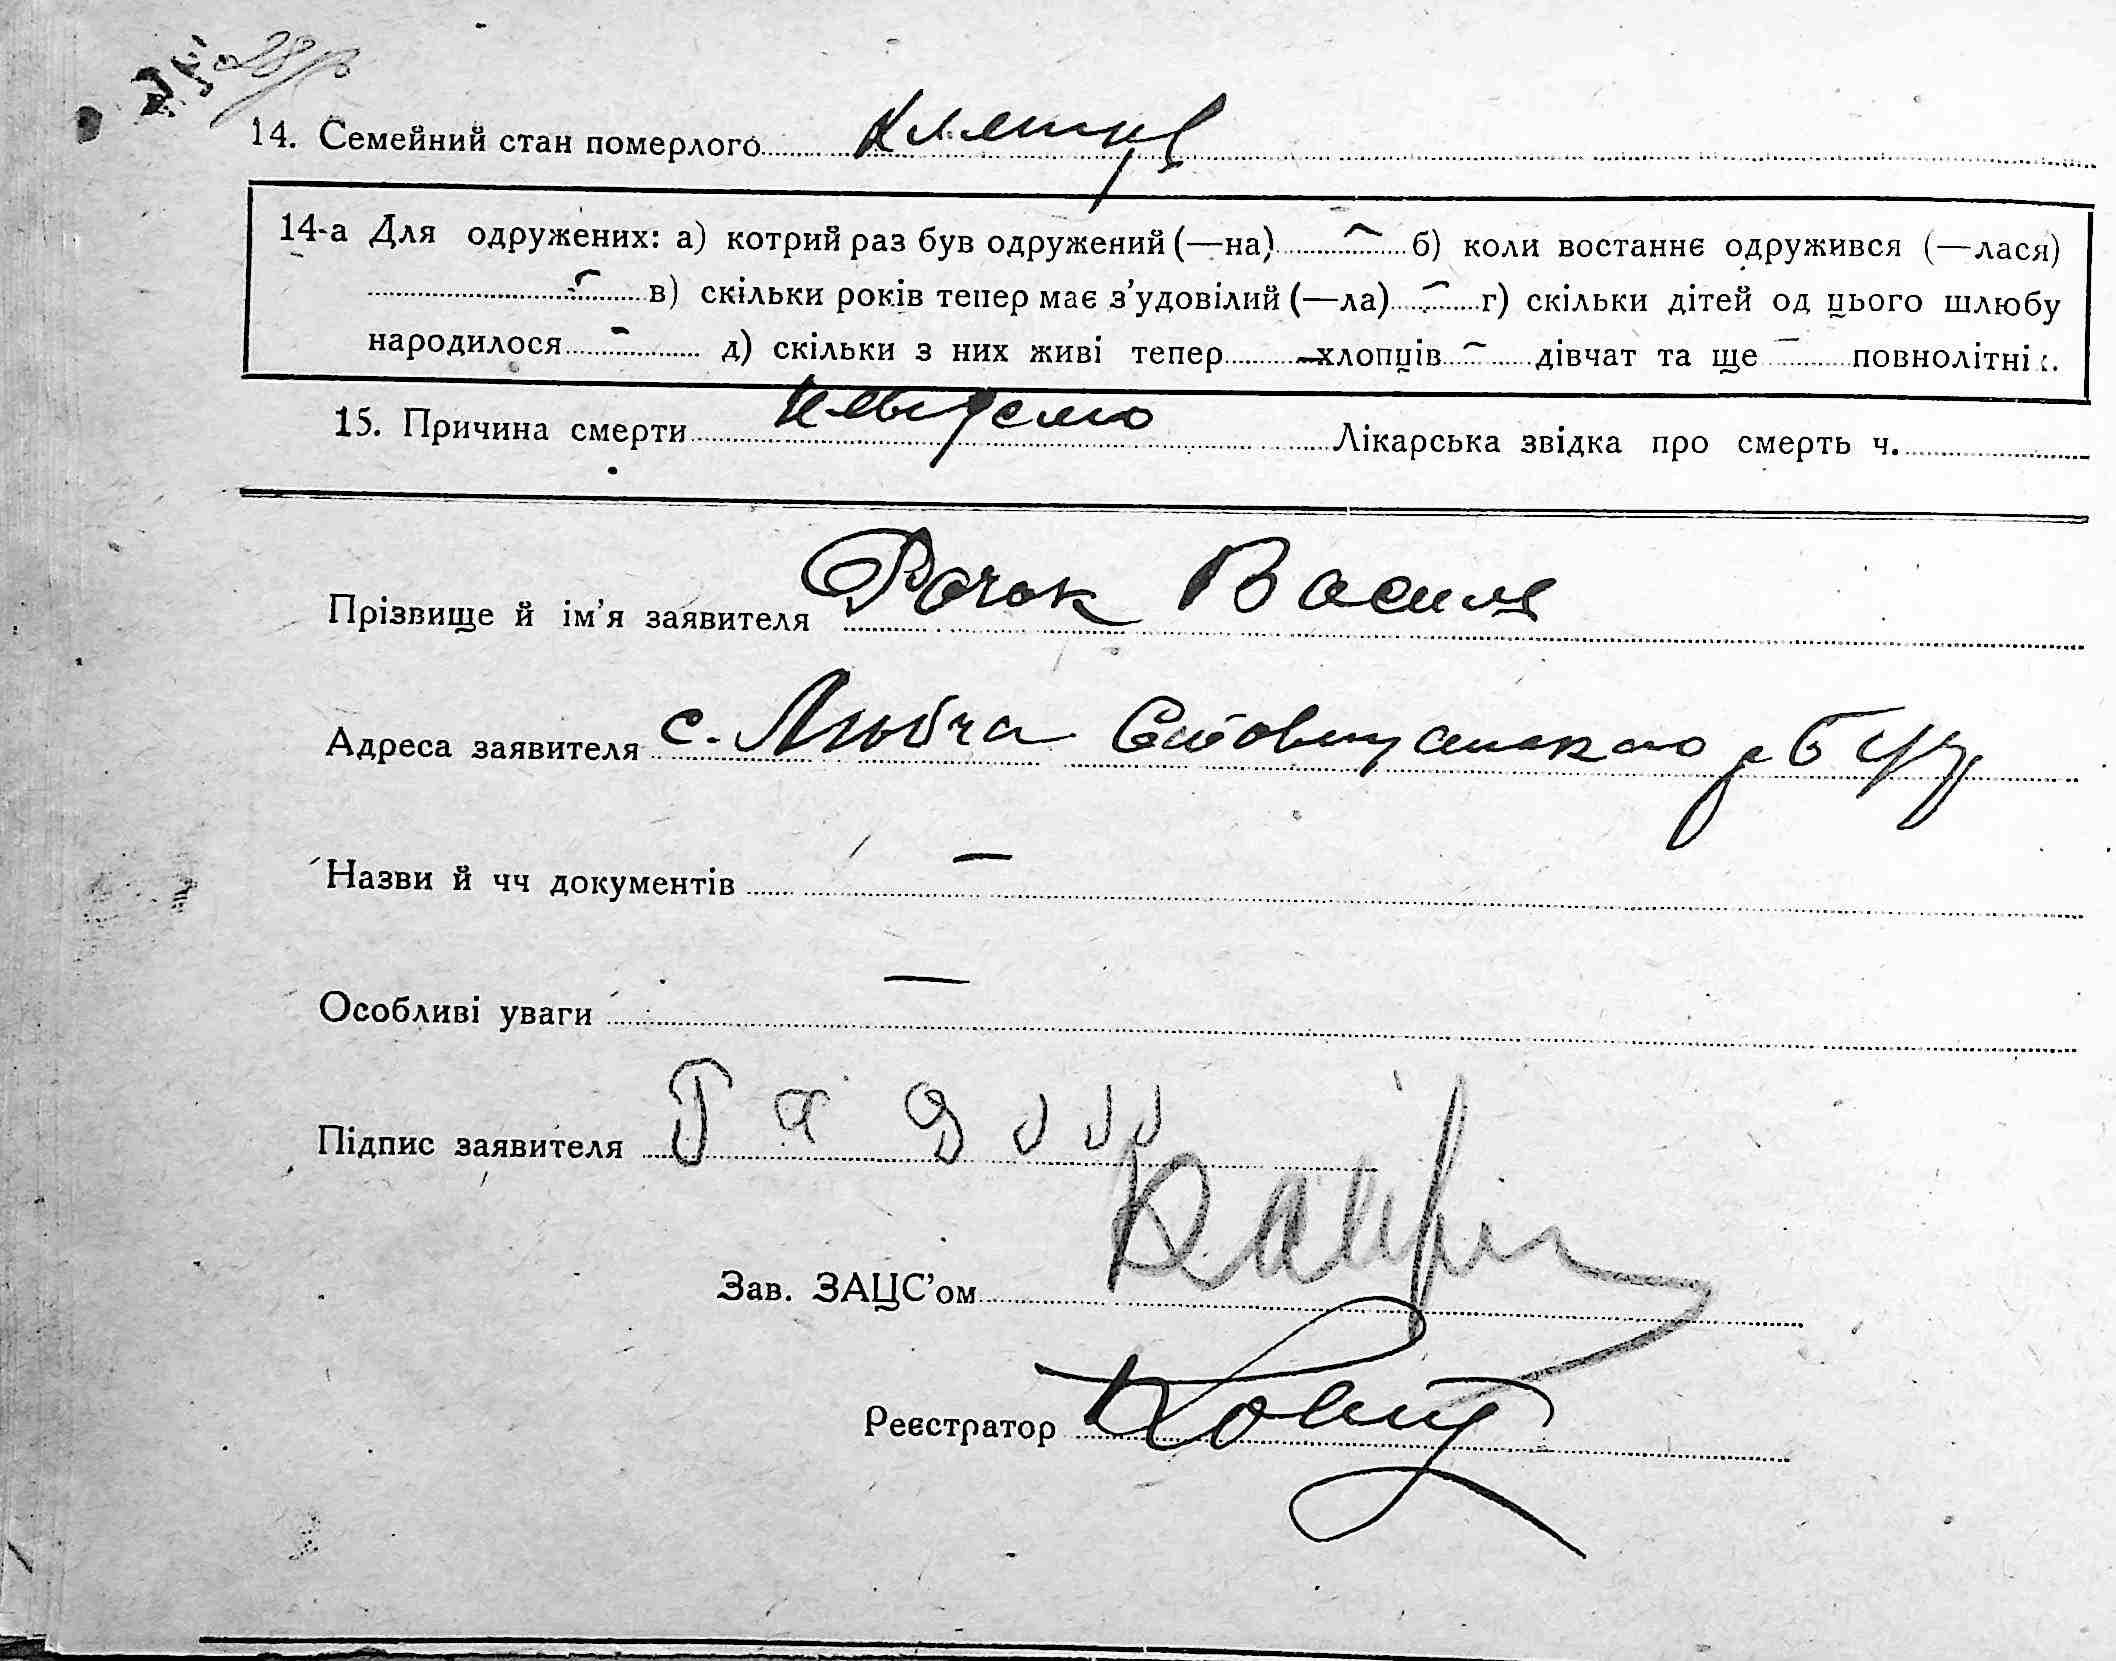 14. Семейний стан померлого
14-а Для одружених: а) котрий раз був одружений (—на) б) коли востаннє одружився (—лася)
в) скільки років тепер має з’удовілий (—ла) г) скільки дітей од цього шлюбу
народилося д) скільки з них живі тепер хлопців дівчат та ще повнолітні
15. Причина смерти невідомо Лікарська звідка про смерть ч.
Прізвище й ім’я заявителя Василь
Адреса заявителя с.
Назви й чч документів —
Особливі уваги —
Підпис заявителя
Зав. ЗАЦС’ом
Реєстратор